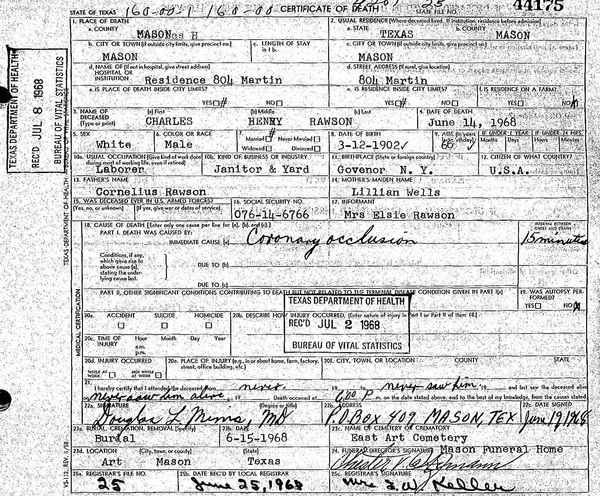 STATE OF TEXAS 160-00-1 160-00 CERTIFICATE OF DEATH STATE FILE NO. 44175
1. PLACE OF DEATH 2. USUAL RESIDENCE (Where deceased lived. If institution: residence before admission)
a. COUNTY MASON a. STATE TEXAS b. COUNTY MASON
b. CITY OR TOWN (If outside city limits, give precinct no.) c. LENGTH OF STAY c. CITY OR TOWN (If outside city limits, give precinct no.)
MASON MASON
d. NAME OF (If not in hospital, give street address) HOSPITAL OR INSTITUTION Residence 804 Martin d. STREET ADDRESS (If rural, give location) 804 Martin
e. IS PLACE OF DEATH INSIDE CITY LIMITS? e. IS RESIDENCE INSIDE CITY LIMITS? f. IS RESIDENCE ON A FARM?
YES NO YES NO YES NO
3. NAME OF DECEASED (Type or print) (a) First (b) Middle (c) Last 4. DATE OF DEATH
CHARLES HENRY RAWSON June 14, 1968
5. SEX 6. COLOR OR RACE 7. Married Never Married Widowed Divorced 8. DATE OF BIRTH 9. AGE IF UNDER 1 YEAR IF UNDER 24 HRS.
White Male 3-12-1902 66
10a. USUAL OCCUPATION (Give kind of work done during most of working life, even if retired) 10b. KIND OF BUSINESS OR INDUSTRY 11. BIRTHPLACE (State or foreign country) 12. CITIZEN OF WHAT COUNTRY?
Laborer Janitor & Yard Govenor N. Y. U.S.A.
13. FATHER'S NAME 14. MOTHER'S MAIDEN NAME
Cornelius Rawson Lillian Wells
15. WAS DECEASED EVER IN U.S. ARMED FORCES? 16. SOCIAL SECURITY NO. 17. INFORMANT
(Yes, no, or unknown) (If yes, give war or dates of service) 076-14-6766 Mrs Elsie Rawson
18. CAUSE OF DEATH [Enter only one cause per line for (a), (b), and (c).] INTERVAL BETWEEN ONSET AND DEATH
PART I. DEATH WAS CAUSED BY:
IMMEDIATE CAUSE (a) Coronary occlusion 15 minutes
Conditions, if any, which gave rise to above cause (a), stating the underlying cause last.
DUE TO (b)
DUE TO (c)
PART II. OTHER SIGNIFICANT CONDITIONS CONTRIBUTING TO DEATH BUT NOT RELATED TO THE TERMINAL DISEASE CONDITION GIVEN IN PART I(a) 19. WAS AUTOPSY PERFORMED?
YES NO
20a. ACCIDENT SUICIDE HOMICIDE 20b. DESCRIBE HOW INJURY OCCURRED. (Enter nature of injury in Part I or Part II of item 18.)
TEXAS DEPARTMENT OF HEALTH
REC'D JUL 2 1968
BUREAU OF VITAL STATISTICS
20c. TIME OF INJURY Hour Month Day Year
a.m.
p.m.
20d. INJURY OCCURRED 20e. PLACE OF INJURY (e.g., in or about home, farm, factory, street, office building, etc.) 20f. CITY, TOWN, OR LOCATION COUNTY STATE
WHILE AT WORK NOT WHILE AT WORK
21. I hereby certify that I attended the deceased from never, 19 to never saw him, 19 and last saw the deceased alive
never saw him alive, 19 Death occurred at 6:00 P m. on the date stated above, and to the best of my knowledge, from the causes stated.
22a. SIGNATURE (Degree or title) 22b. ADDRESS 22c. DATE SIGNED
Douglas L Mims, MD P.O Box 409 MASON, TEX June 19, 1968
23a. BURIAL, CREMATION, REMOVAL (Specify) 23b. DATE 23c. NAME OF CEMETERY OR CREMATORY
Burial 6-15-1968 East Art Cemetery
23d. LOCATION (City, town, or county) (State) 24. FUNERAL DIRECTOR'S SIGNATURE Mason Funeral Home
Art Mason Texas
25a. REGISTRAR'S FILE NO. 25b. DATE REC'D BY LOCAL REGISTRAR 25c. REGISTRAR'S SIGNATURE
25 June 25, 1968 Mrs F. W. Keller
TEXAS DEPARTMENT OF HEALTH
REC'D JUL 8 1968
BUREAU OF VITAL STATISTICS
MEDICAL CERTIFICATION